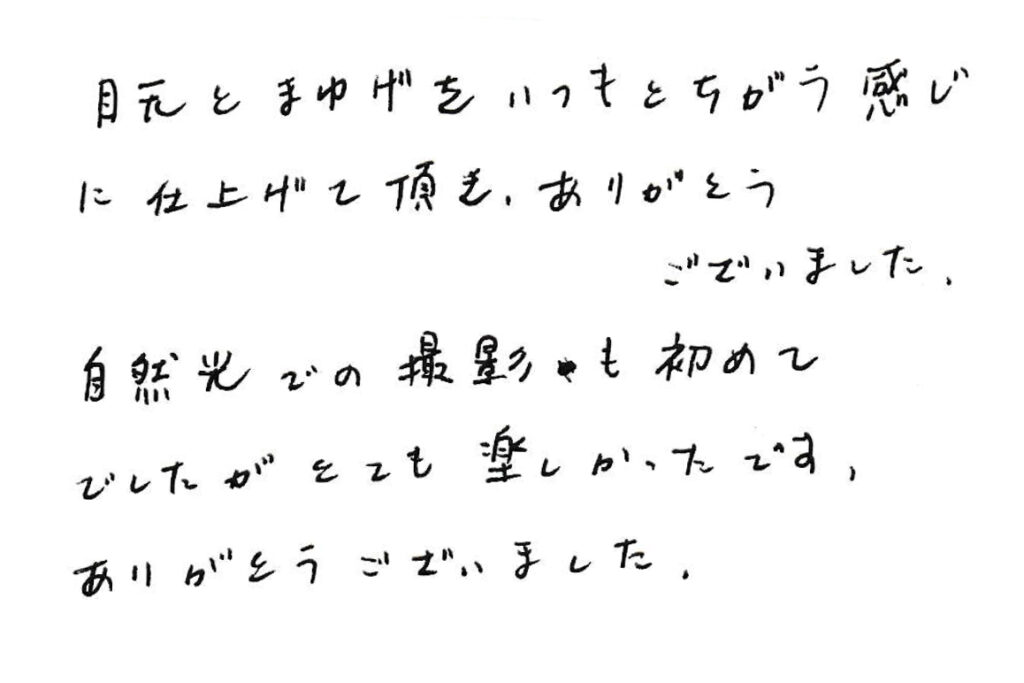 目元とまゆげをいつもとちがう感じ
に仕上げて頂き、ありがとう
ございました。
自然光での撮影も初めて
でしたがとても楽しかったです。
ありがとうございました。